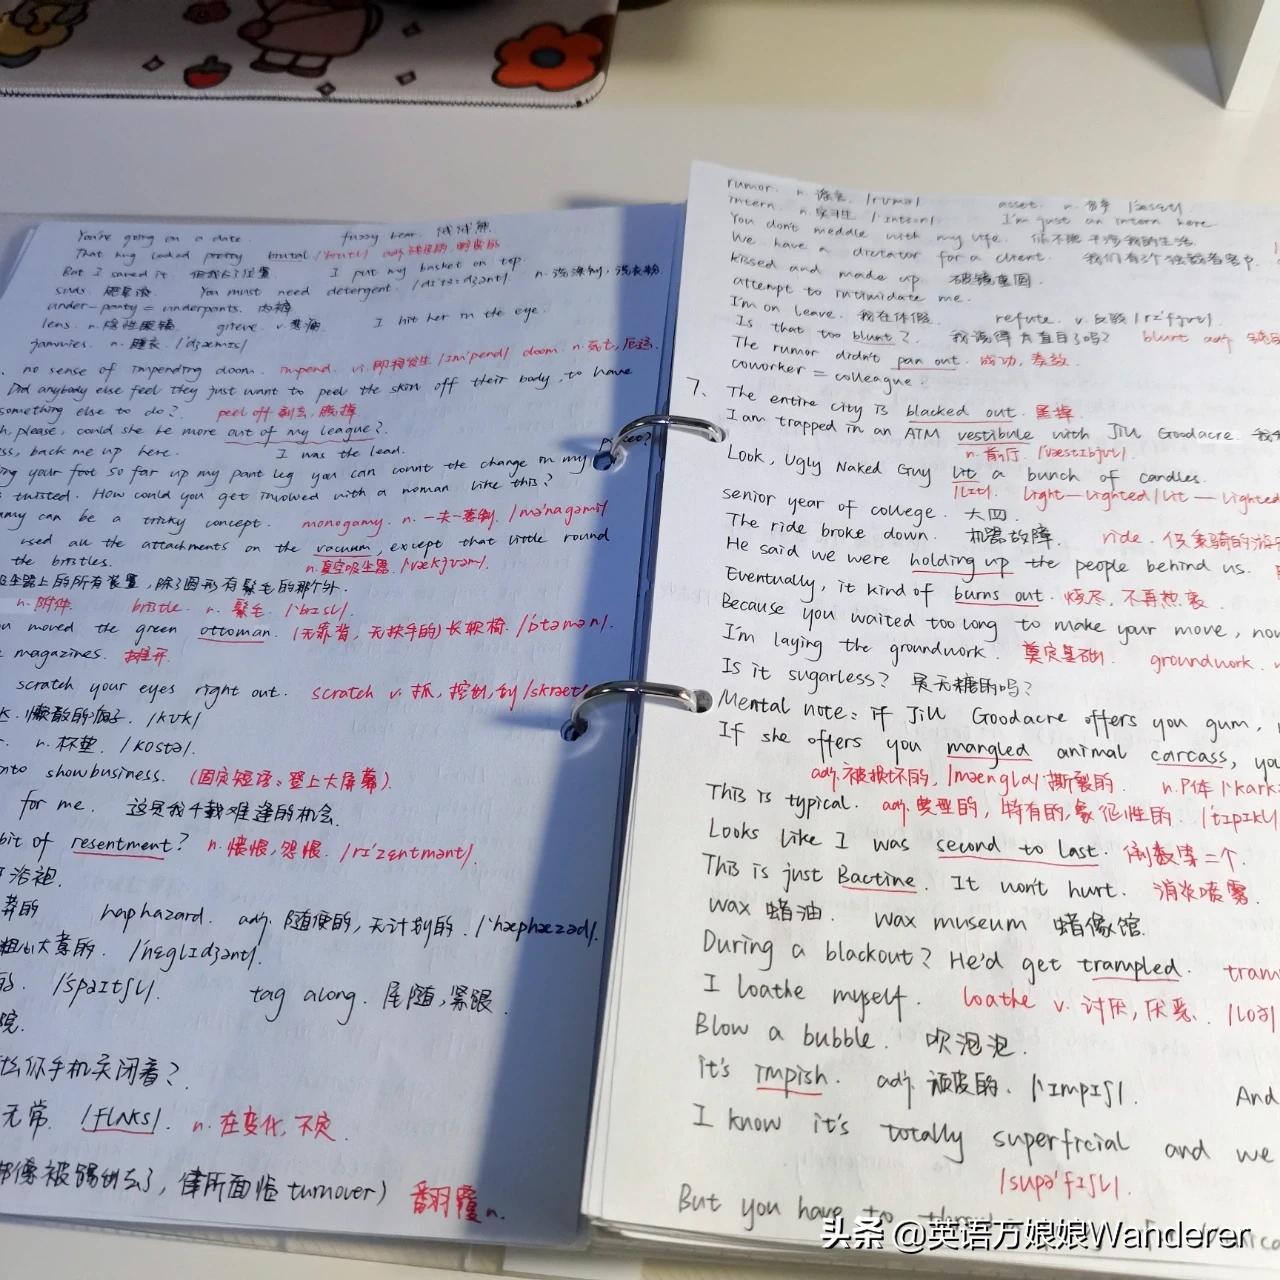 You're going on a date. fuzzy bear.
That guy looked pretty brutal
But I saved it. I put my basket on top.
suds. 肥皂液. You must need detergent. n. 洗涤剂, 洗衣粉
under-panty = underpants. 内裤
lens. grieve. v. I hit her in the eye.
jammies. n. 睡衣.
no sense of impending doom. impend. vi. 即将发生 /ɪm'pend/ doom. n. 死亡, 厄运.
Did anybody else feel they just want to peel the skin off their body, to have
something else to do? peel off 剥去, 脱掉
please, could she be more out of my league?
back me up here. I was the lead.
your foot so far up my pant leg you can count the change in my pocket?
twisted. How could you get involved with a woman like this?
can be a tricky concept. monogamy. n. 一夫一妻制. /mə'nɒgəmi/
used all the attachments on the vacuum, except that little round
the bristles. n. 真空吸尘器. /'vækjʊəm/.
上的所有装置, 除了圆形有鬃毛的那个外.
n. 附件. bristle. n. 鬃毛. /'brɪsl/
moved the green ottoman. (无靠背, 无扶手的) 长软椅. /'ɒtəmən/.
magazines. 推开.
scratch your eyes right out. scratch v. 抓, 挖
懒散的疯子 /kʊk/
n. 杯垫. /kostə/.
onto showbusiness. (固定短语: 登上大屏幕).
for me. 这是我千载难逢的机会.
bit of resentment? n. 愤恨, 怨恨. /rɪ'zentmənt/.
浴袍.
haphazard. adj. 随便的, 无计划的. /'hæphæzəd/.
粗心大意的. /'neglɪdʒənt/.
/'spəɪtʃl/. tag along. 尾随, 紧跟.
院.
么你手机关闭着?
无常. /flʌks/. n. 在变化, 不定.
像被踢出去了, 律所面临 turnover) 翻覆 n.
rumor. n. 谣言. asset. n.
intern. n. 实习生 I'm just an intern here.
You don't meddle with my life. 你不要干涉我的生活.
We have a dictator for a client. 我们有个独裁者客户.
kissed and made up. 破镜重圆.
attempt to intimidate me.
I'm on leave. 我在休假. refute. v. 反驳 /rɪ'fjut/.
Is that too blunt? 我说得太直白了吗? blunt adj.
The rumor didn't pan out. 成功, 奏效.
coworker = colleague.
7. The entire city is blacked out.
I am trapped in an ATM vestibule with Jill Goodacre.
n. 前厅. /'vestɪbjʊl/.
Look, Ugly Naked Guy lit a bunch of candles.
/lɪt/. light—lighted/lit—lighted
senior year of college. 大四.
The ride broke down. 机器故障. ride.
He said we were holding up the people behind us.
Eventually, it kind of burns out. 燃尽, 不再热衷
Because you waited too long to make your move,
I'm laying the groundwork. 奠定基础. groundwork.
Is it sugarless? 是无糖的吗?
Mental note: if Jill Goodacre offers you gum,
If she offers you mangled animal carcass,
adj. 被损坏的, /'mæŋgld/ 撕裂的. n. 尸体
This is typical. adj. 典型的, 特有的, 象征性的. /'tɪpɪkl/
Looks like I was second to last. 倒数第二个.
This is just Bactine. It won't hurt. 消炎喷雾.
wax 蜡油. wax museum 蜡像馆.
During a blackout? He'd get trampled.
I loathe myself. loathe v. 讨厌, 厌恶.
Blow a bubble. 吹泡泡.
it's impish. adj. 顽皮的. /'ɪmpɪʃ/. And
I know it's totally superficial and we
/supə'fɪʃl/.
But you have to
头条 @英语万娘娘Wanderer